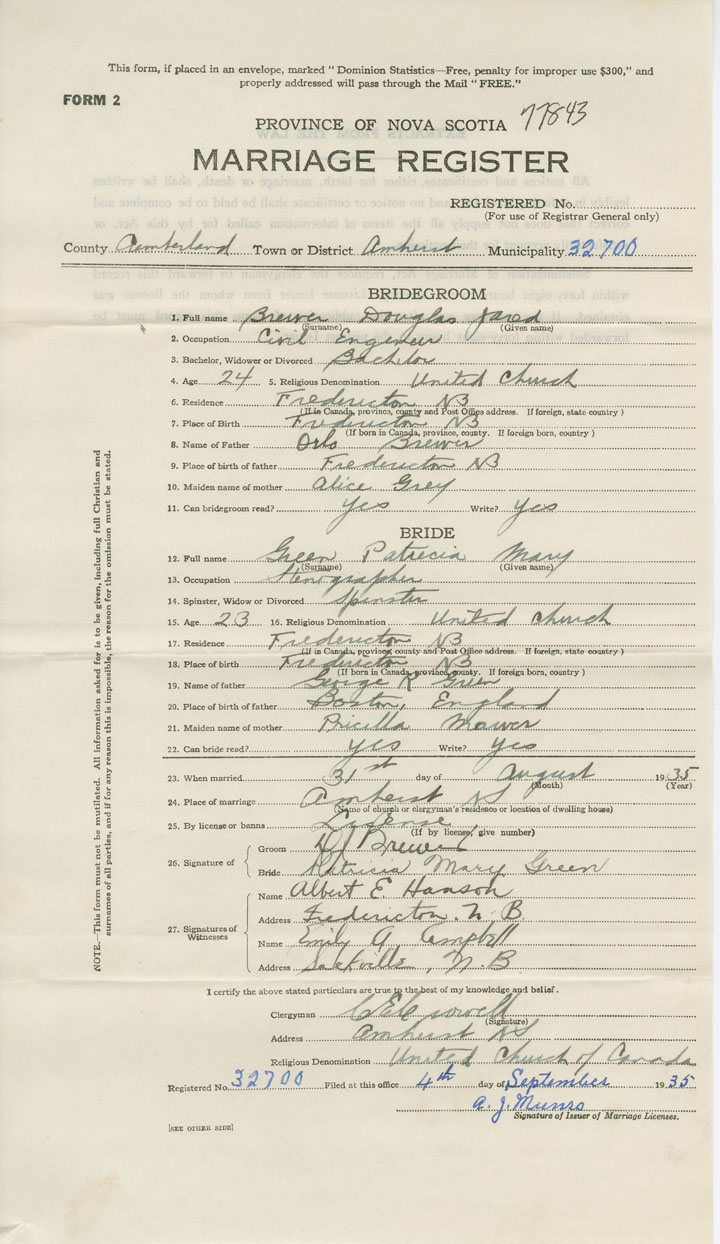 This form, if placed in an envelope, marked "Dominion Statistics—Free, penalty for improper use $300," and
properly addressed will pass through the Mail "FREE."
FORM 2
PROVINCE OF NOVA SCOTIA 77843
MARRIAGE REGISTER
REGISTERED No.
(For use of Registrar General only)
County Cumberland Town or District Amherst Municipality 32700
BRIDEGROOM
1. Full name Brewer Douglas Jared
(Surname) (Given name)
2. Occupation Civil Engineer
3. Bachelor, Widower or Divorced Bachelor
4. Age 24 5. Religious Denomination United Church
6. Residence Fredericton NB
(If in Canada, province, county and Post Office address. If foreign, state country)
7. Place of Birth Fredericton NB
(If born in Canada, province, county. If foreign born, country)
8. Name of Father Orlo Brewer
9. Place of birth of father Fredericton NB
10. Maiden name of mother Alice Grey
11. Can bridegroom read? Yes Write? Yes
BRIDE
12. Full name Green Patricia Mary
(Surname) (Given name)
13. Occupation Stenographer
14. Spinster, Widow or Divorced Spinster
15. Age 23 16. Religious Denomination United Church
17. Residence Fredericton NB
(If in Canada, province, county and Post Office address. If foreign, state country)
18. Place of birth Fredericton NB
(If born in Canada, province, county. If foreign born, country)
19. Name of father George K Green
20. Place of birth of father Boston, England
21. Maiden name of mother Pricilla Mawer
22. Can bride read? Yes Write? Yes
23. When married 31st day of August 1935
(Month) (Year)
24. Place of marriage Amherst NS
(Name of church or clergyman's residence or location of dwelling house)
25. By license or banns License
(If by license, give number)
26. Signature of
Groom DJ Brewer
Bride Patricia Mary Green
27. Signatures of Witnesses
Name Albert E. Hanson
Address Fredericton. N. B.
Name Emily A. Campbell
Address Sackville, N. B.
I certify the above stated particulars are true to the best of my knowledge and belief.
Clergyman
(Signature)
Address Amherst NS
Religious Denomination United Church of Canada
Registered No. 32700 Filed at this office 4th day of September 1935
A. J. Munro
Signature of Issuer of Marriage Licenses.
[SEE OTHER SIDE]
NOTE.—This form must not be mutilated. All information asked for is to be given, including full Christian and
surnames of all parties, and if for any reason this is impossible, the reason for the omission must be stated.